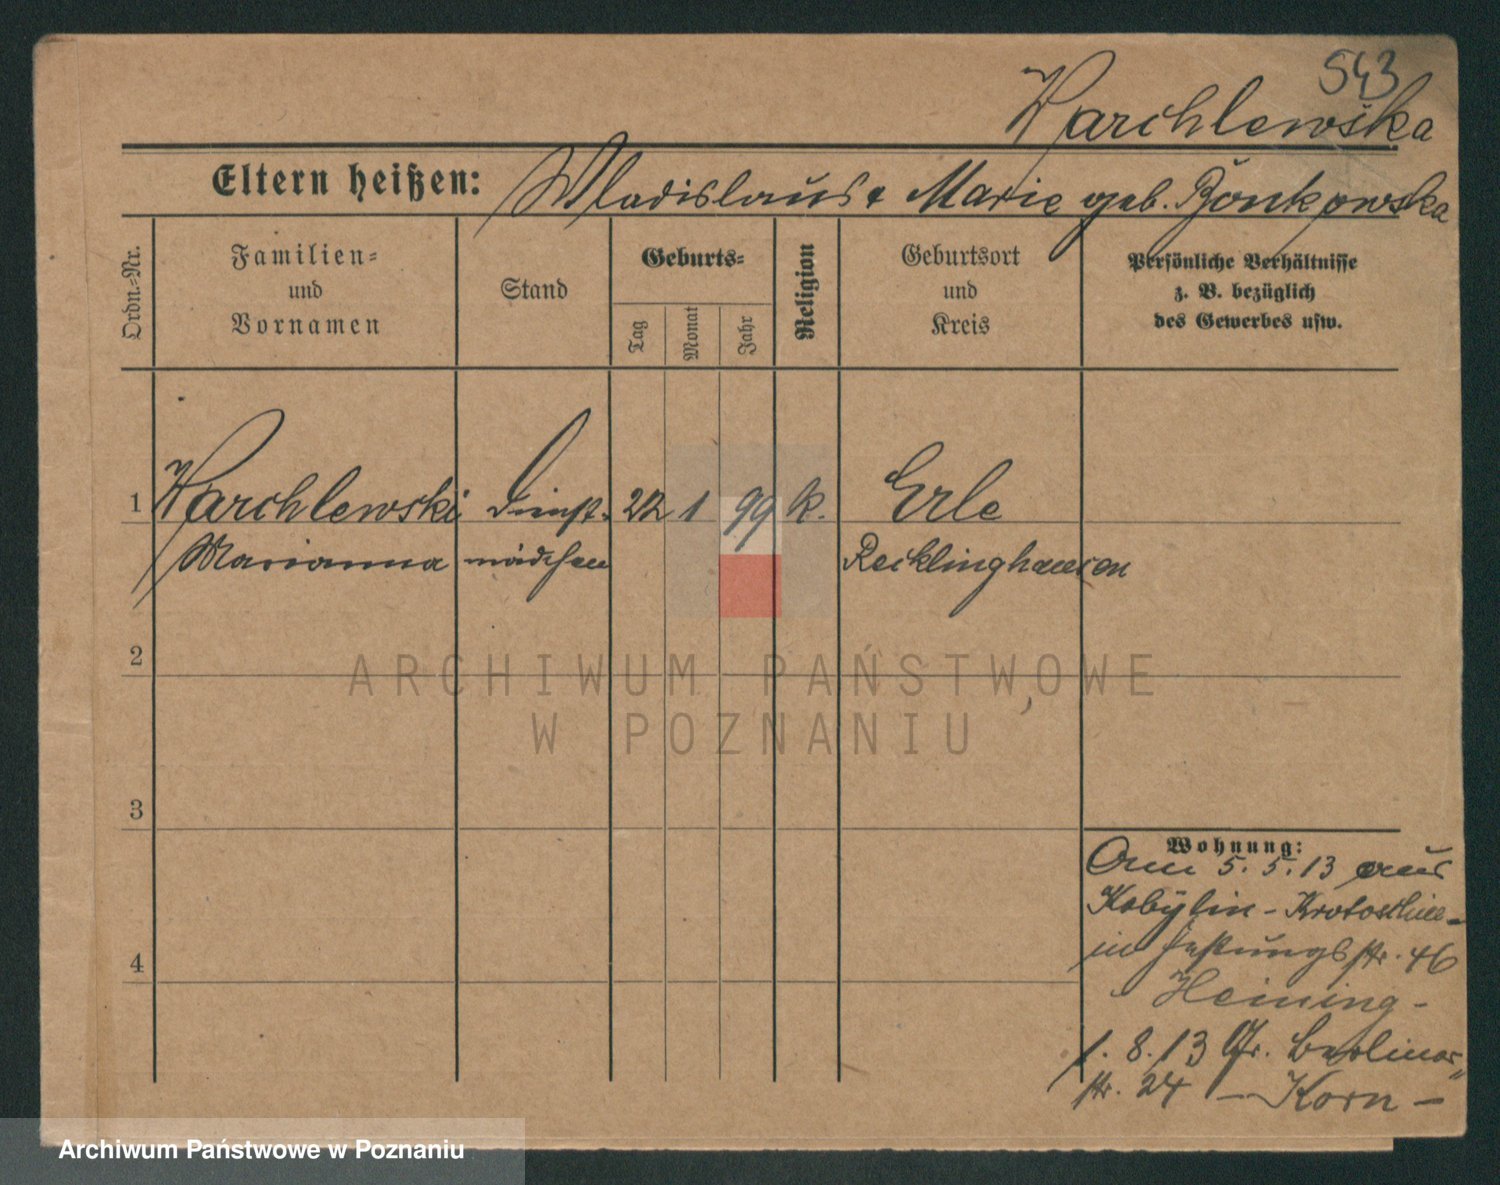 543
Warchlewska
Eltern heißen: Wladislaus & Marie geb. Bonkowska
Ordn.-Nr.
Familien-
und
Vornamen
Stand
Geburts-
Tag
Monat
Jahr
Religion
Geburtsort
und
Kreis
Persönliche Verhältnisse
z. B. bezüglich
des Gewerbes usw.
1 Warchlewski Dienst- 22 1 99 k. Erle
Marianna mädchen Recklinghausen
2
ARCHIWUM PAŃSTWOWE
W POZNANIU
3
Wohnung:
Am 5.5.13 aus
Kobylin - Krotoschin -
in Festungsstr. 46
4
Heining -
1. 8. 13 Gr. Berliner
str. 24 - Korn -
Archiwum Państwowe w Poznaniu